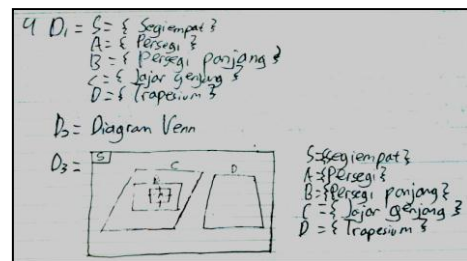 4 D₁ = S = { Segiempat }
A = { Persegi }
B = { Persegi panjang }
C = { Jajar genjang }
D = { Trapesium }
D₂ = Diagram Venn
D₃ =
S
C
D
S={segiempat}
A={Persegi}
B={Persegi panjang}
C = { Jajar genjang }
D = { Trapesium }